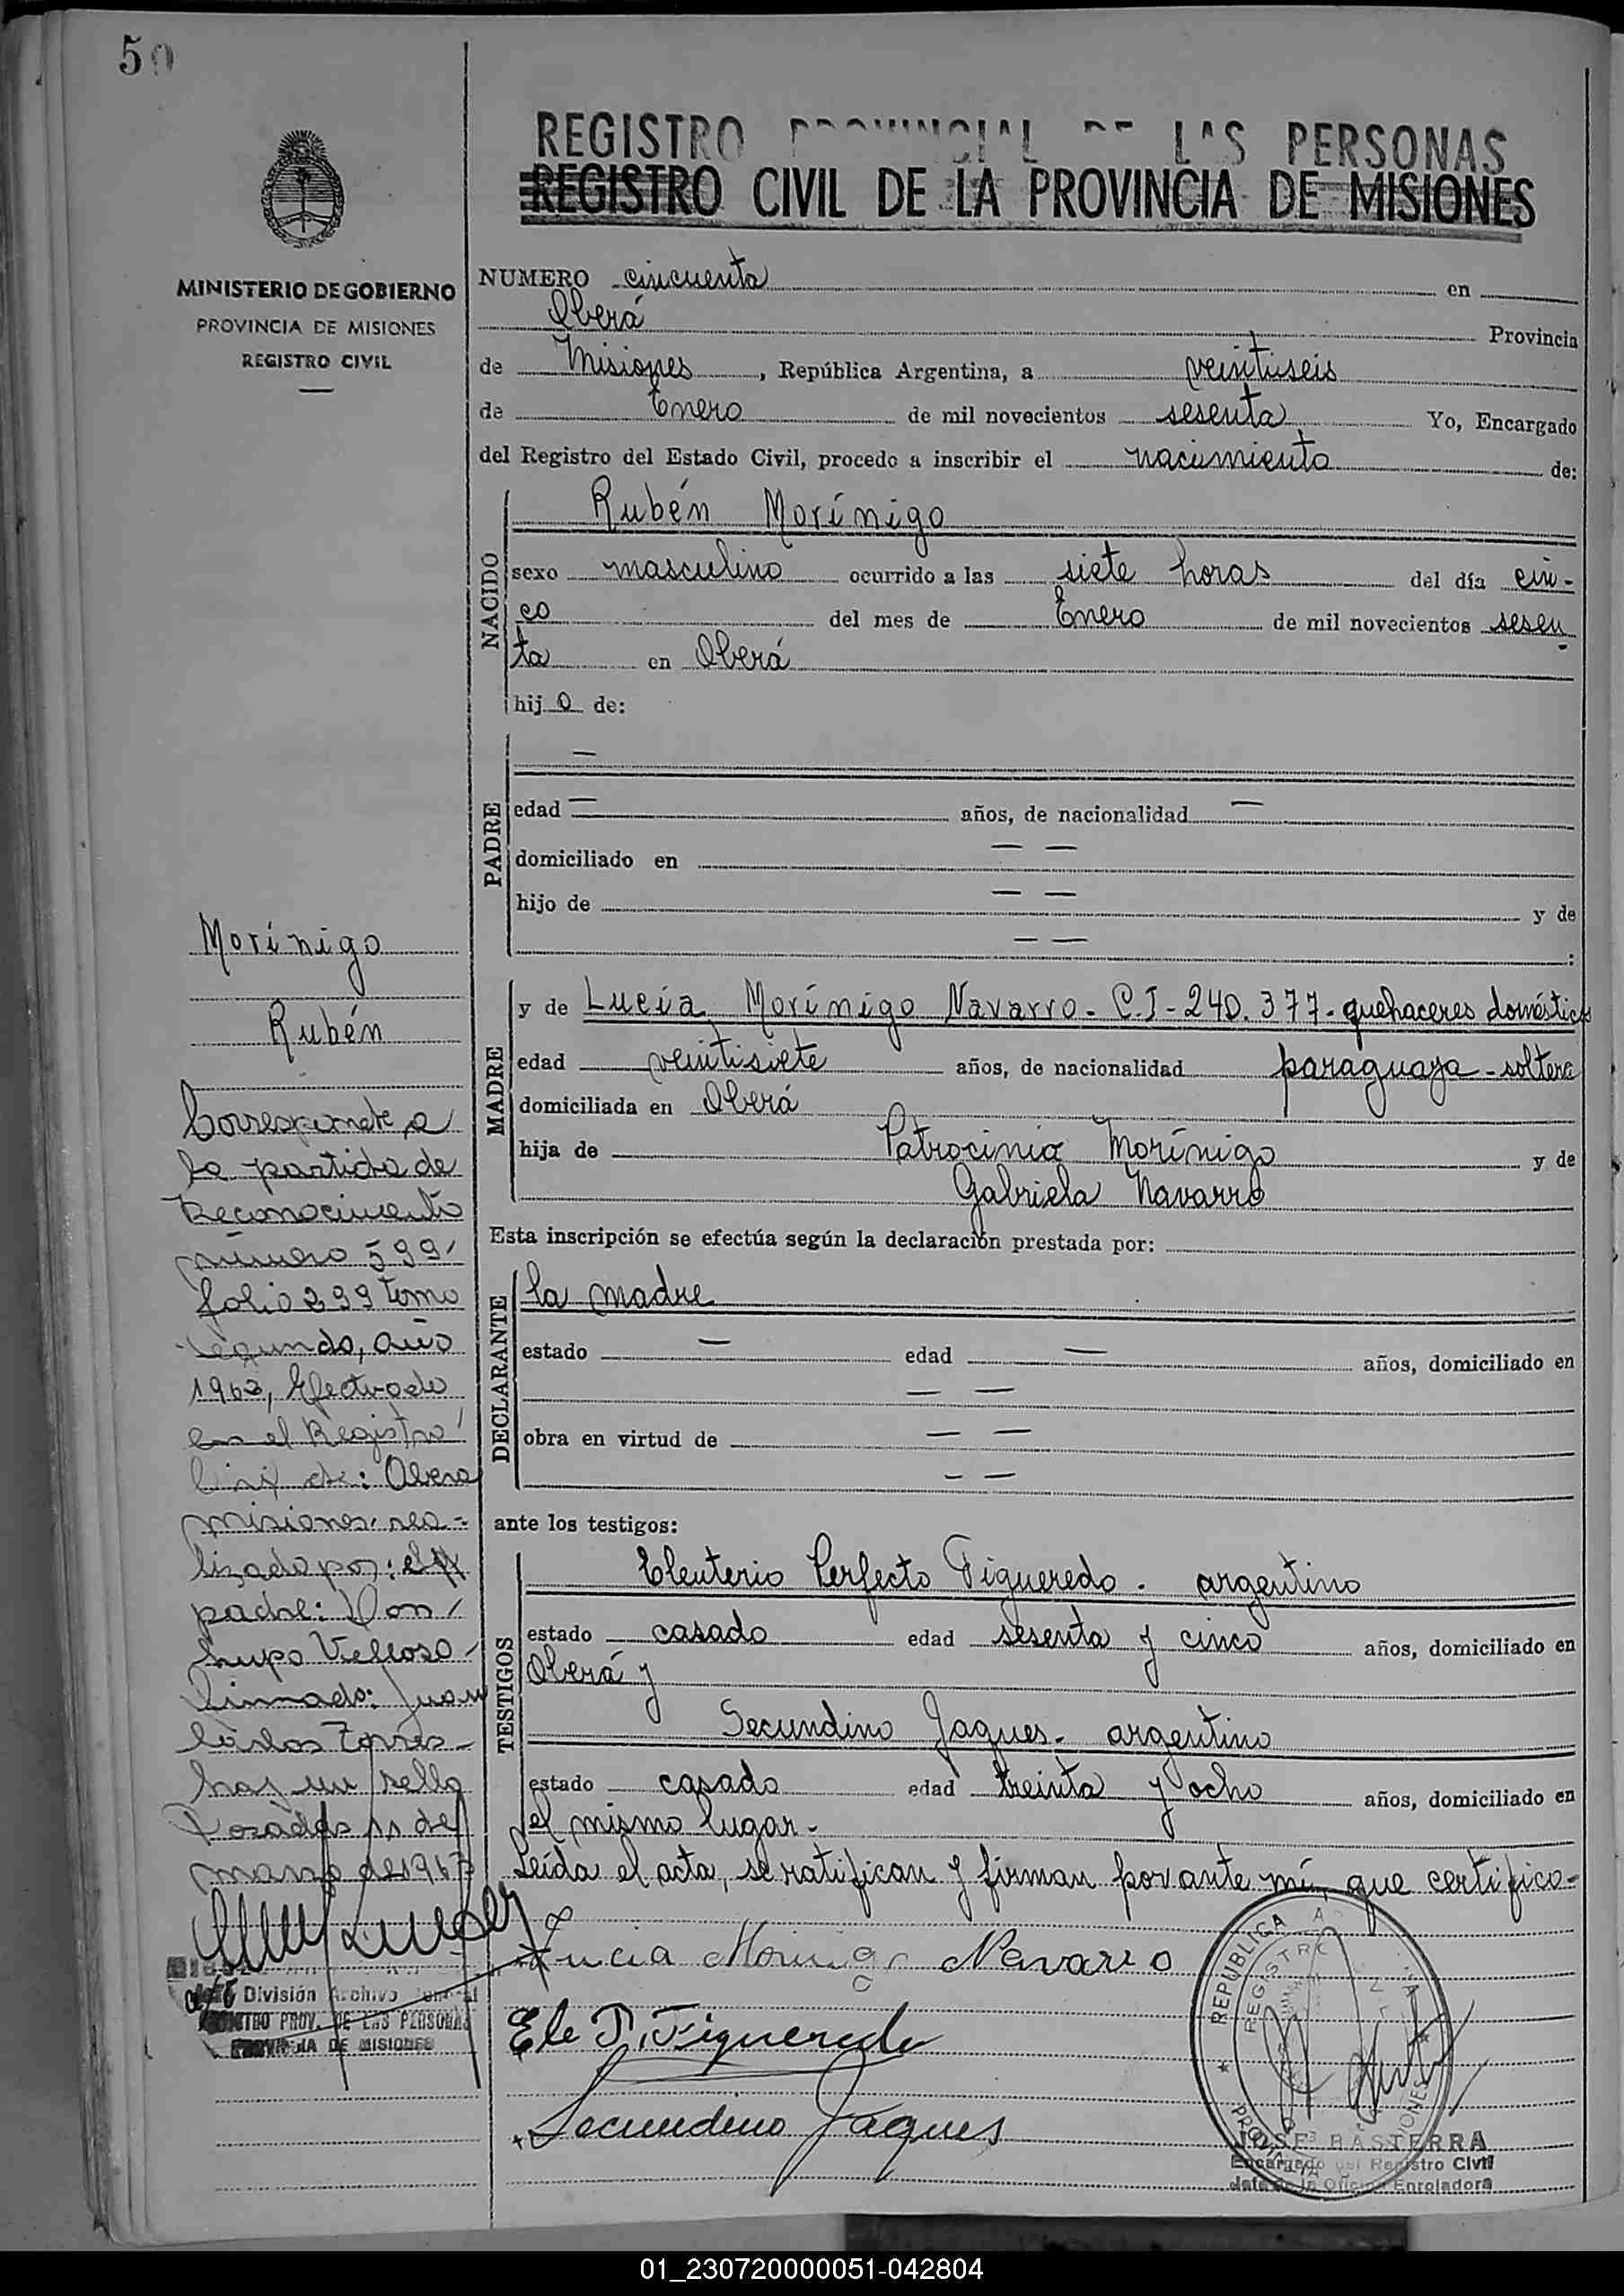 50
REGISTRO PROVINCIAL DE LAS PERSONAS
REGISTRO CIVIL DE LA PROVINCIA DE MISIONES
MINISTERIO DE GOBIERNO
PROVINCIA DE MISIONES
REGISTRO CIVIL
NUMERO cincuenta en
Oberá Provincia
de Misiones, República Argentina, a veintiseis
de Enero de mil novecientos sesenta Yo, Encargado
del Registro del Estado Civil, procedo a inscribir el nacimiento de:
NACIDO
Rubén Morínigo
sexo masculino ocurrido a las siete horas del día cin-
co del mes de Enero de mil novecientos sesen-
ta en Oberá
hijo de:
PADRE
—
edad — años, de nacionalidad —
domiciliado en — —
hijo de — — y de
— — :
MADRE
y de Lucía Morínigo Navarro - C.I - 240.377 - quehaceres domésticos
edad veintisiete años, de nacionalidad paraguaya - soltera
domiciliada en Oberá
hija de Patrocinio Morínigo y de
Gabriela Navarro
Esta inscripción se efectúa según la declaración prestada por:
DECLARANTE
la madre
estado — edad — años, domiciliado en
— —
obra en virtud de — —
— —
ante los testigos:
TESTIGOS
Eleuterio Perfecto Figueredo - argentino
estado casado edad sesenta y cinco años, domiciliado en
Oberá y
Secundino Jaques - argentino
estado casado edad treinta y ocho años, domiciliado en
el mismo lugar.-
Leída el acta, se ratifican y firman por ante mí, que certifico-
Lucia Morinigo Navarro
Ele P. Figueredo
Secundino Jaques
REPUBLICA
REGISTRO
JOSE BASTERRA
Encargado del Registro Civil
Jefe de la Oficina Enroladora
Morínigo
Rubén
Corresponde a
la partida de
Reconocimiento
número 599/
folio 299 tomo
segundo, año
1963, Efectuado
en el Registro
Civil de: Obera
Misiones, rea-
lizado por: el
padre: Don
Lupo Velloso
Firmado: Juan
Carlos Torres-
hay un sello
Posadas 11 de
marzo de 1967
División Archivo General
REGISTRO PROV. DE LAS PERSONAS
PROVINCIA DE MISIONES
01_230720000051-042804